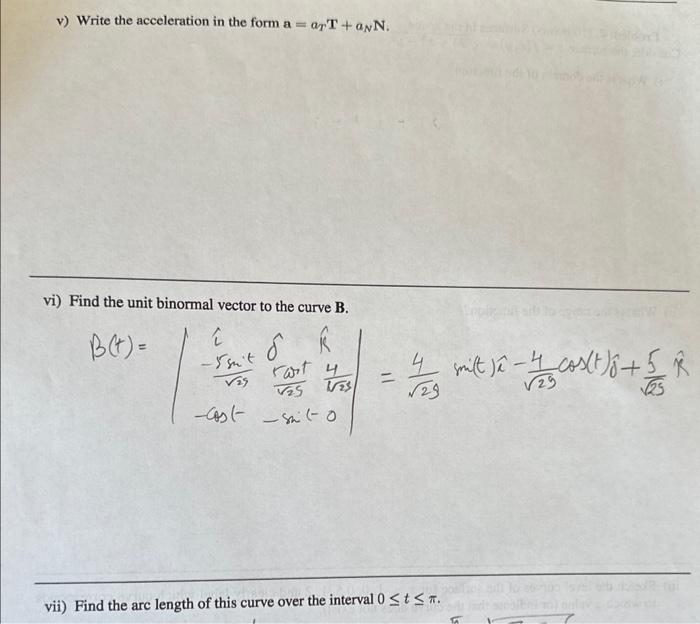 v) Write the acceleration in the form a = a_T T + a_N N.
vi) Find the unit binormal vector to the curve B.
B(t) = | î ĵ k̂ |
| -5 sin t/√29 5 cos t/√29 4/√29 | = 4/√29 sin(t) î - 4/√29 cos(t) ĵ + 5/√29 k̂
| -cos t -sin t 0 |
vii) Find the arc length of this curve over the interval 0 ≤ t ≤ π.